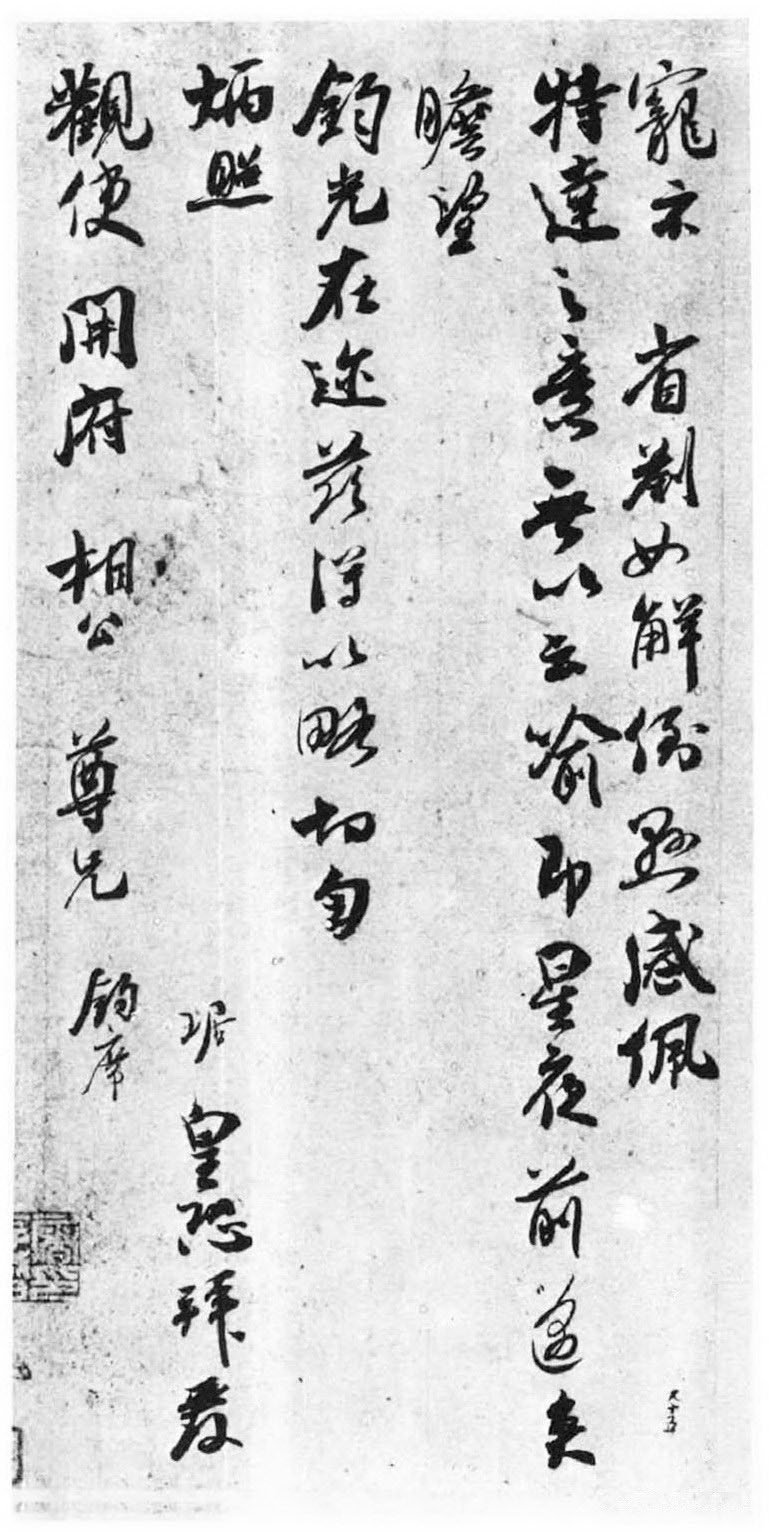 寵示 省劄如解倒懸感佩
特達之意無以云喻即星夜前邁矣
瞻望
鈞光在邇茲得以略切匄
炳照
琚 皇恐拜覆
觀使 開府 相公 尊兄 鈞席